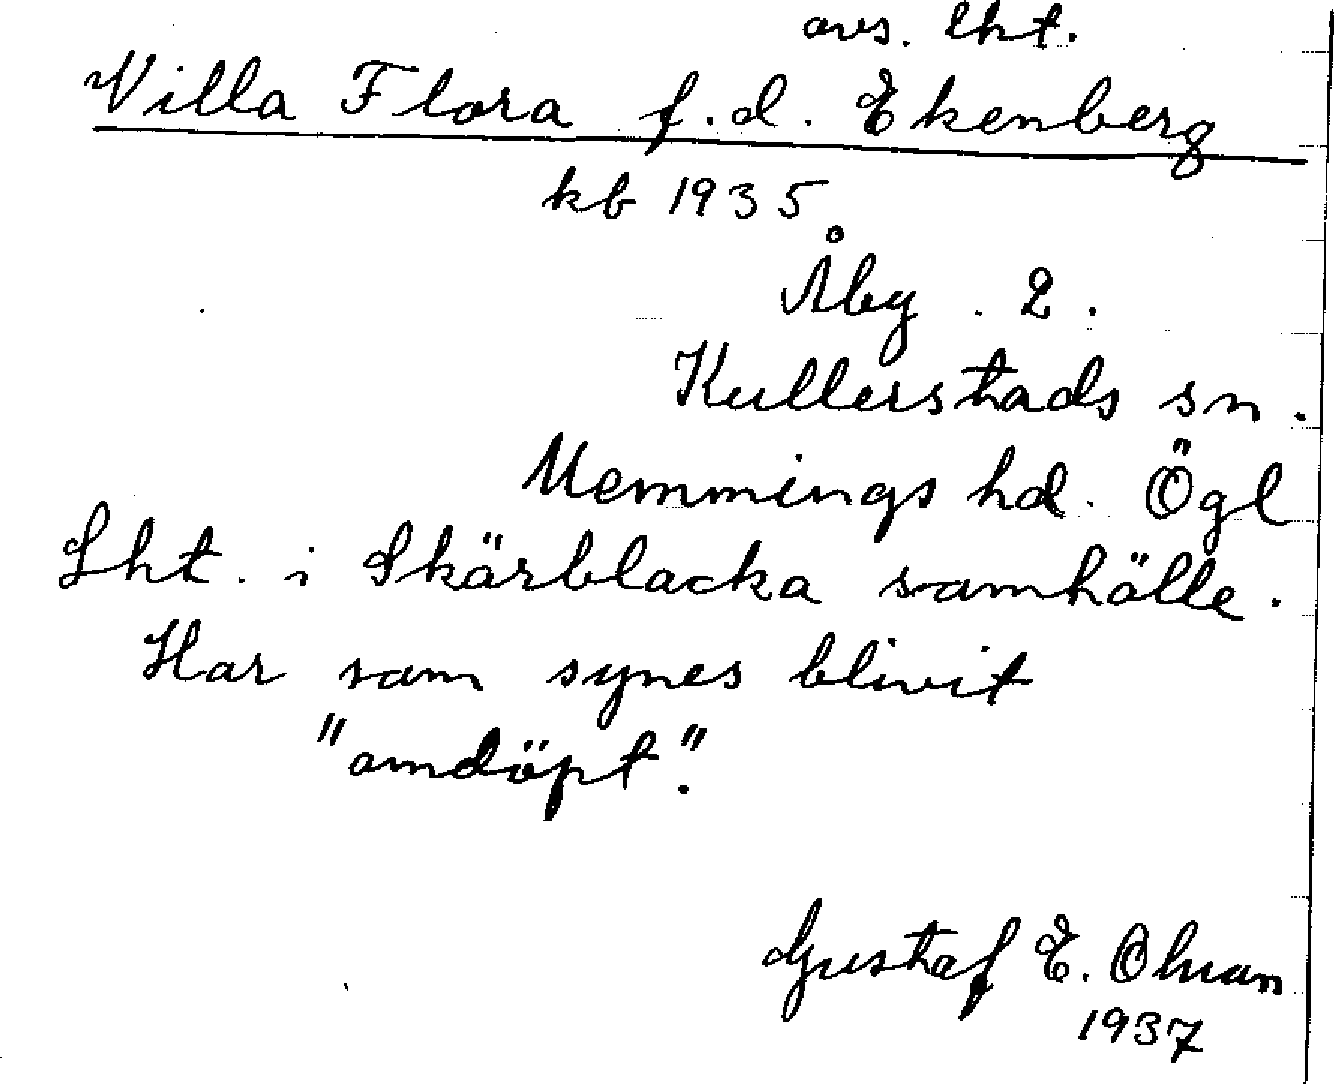 avs. lht.
Villa Flora f.d. Ekenberg
kb 1935
Åby . 2 .
Kullerstads sn.
Memmings hd. Ögl
Lht. i Skärblacka samhälle.
Har som synes blivit
"omdöpt".
Gustaf E. Olsson
1937